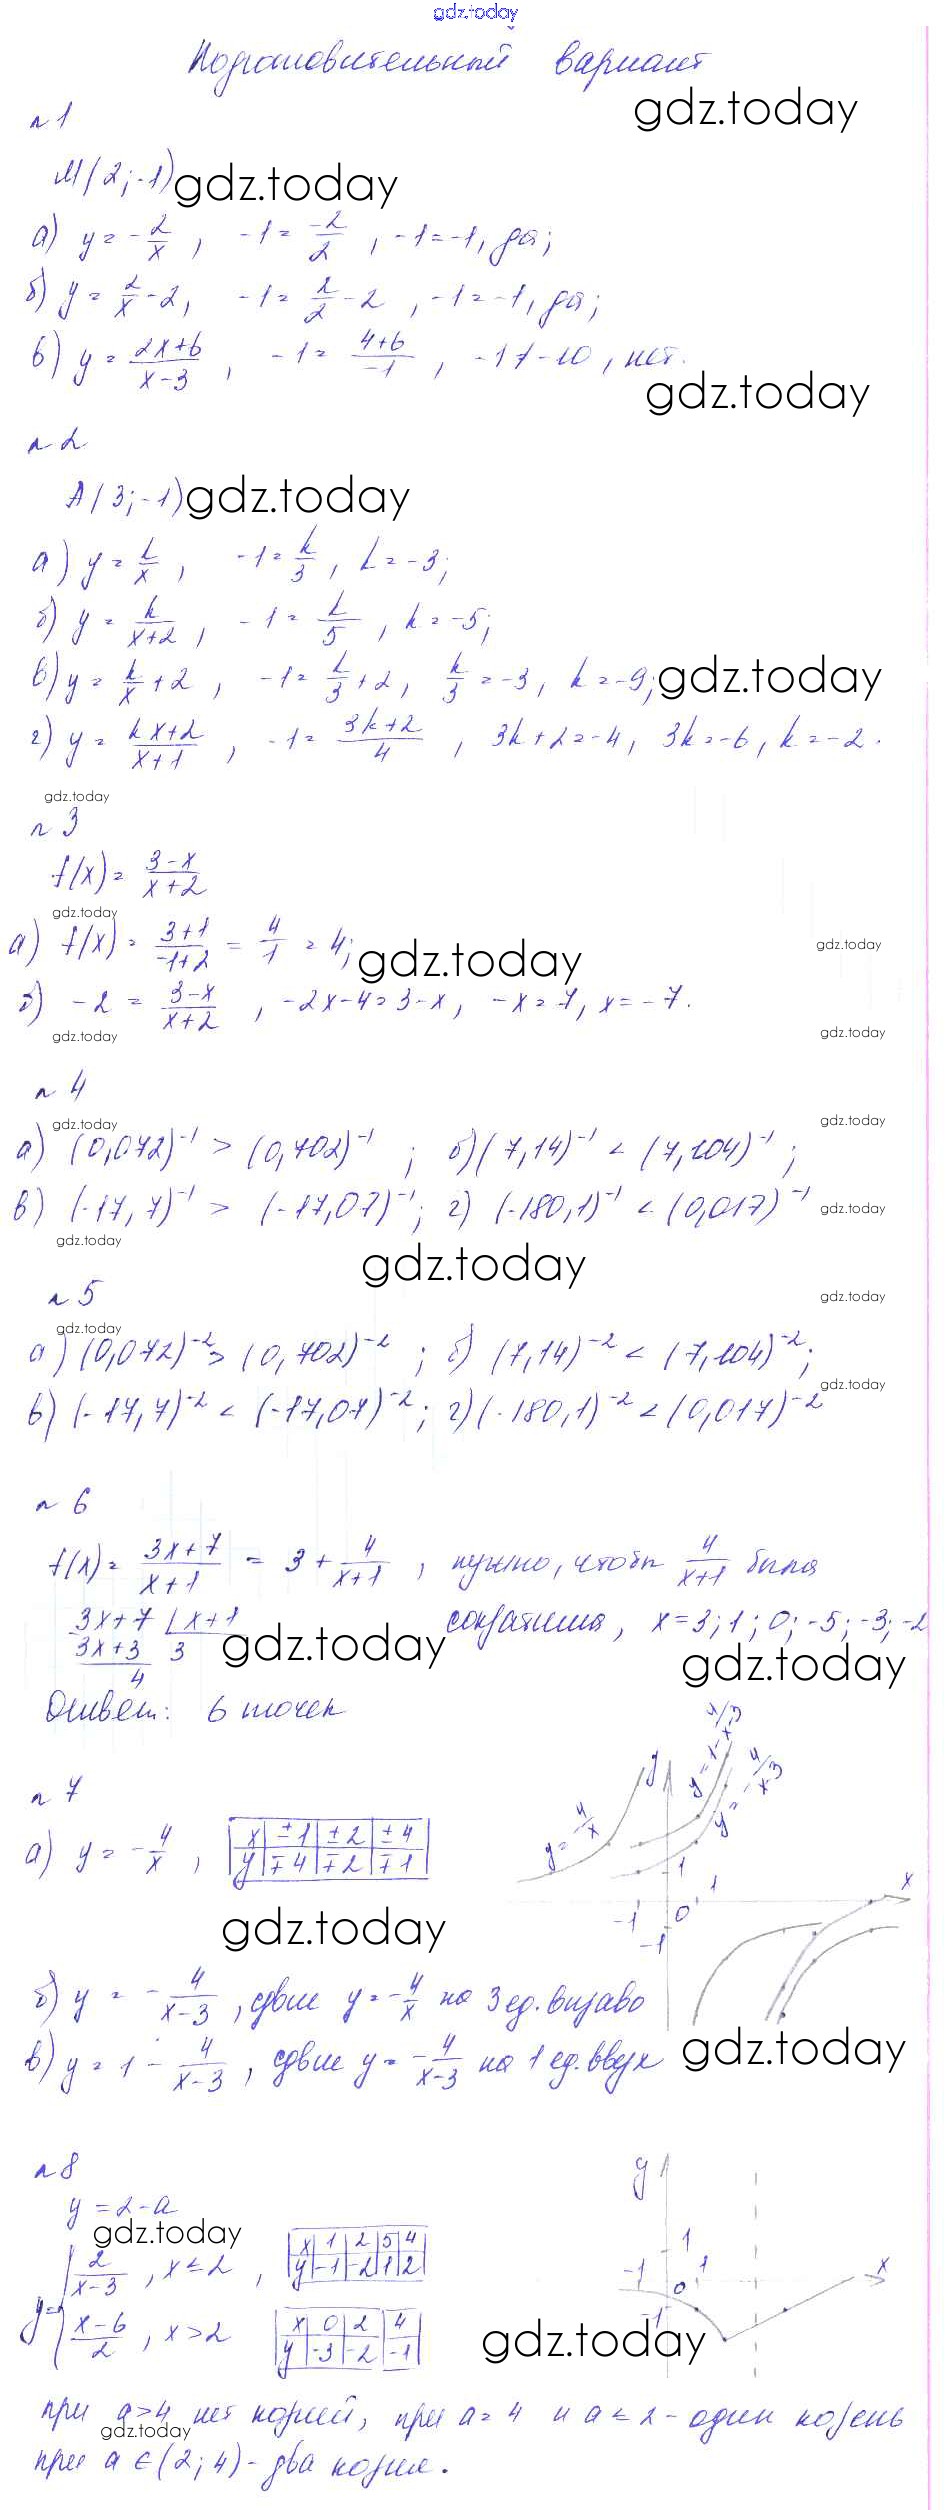 gdz.today
Подготовительный вариант
gdz.today
n 1
M(2; -1) gdz.today
а) y = -2/x, -1 = -2/2, -1 = -1, да;
б) y = 2/x - 2, -1 = 2/2 - 2, -1 = -1, да;
в) y = (2x+6)/(x-3), -1 = (4+6)/-1, -1 ≠ -10, нет.
gdz.today
n 2
A(3; -1) gdz.today
а) y = k/x, -1 = k/3, k = -3;
б) y = k/(x+2), -1 = k/5, k = -5;
в) y = k/x + 2, -1 = k/3 + 2, k/3 = -3, k = -9; gdz.today
г) y = (kx+2)/(x+1), -1 = (3k+2)/4, 3k+2 = -4, 3k = -6, k = -2.
gdz.today
n 3
f(x) = (3-x)/(x+2)
gdz.today
а) f(x) = (3+1)/(-1+2) = 4/1 = 4; gdz.today gdz.today
б) -2 = (3-x)/(x+2), -2x-4 = 3-x, -x = 7, x = -7.
gdz.today gdz.today
n 4
gdz.today gdz.today
а) (0,072)⁻¹ > (0,702)⁻¹; б) (7,14)⁻¹ < (7,104)⁻¹;
в) (-17,7)⁻¹ > (-17,07)⁻¹; г) (-180,1)⁻¹ < (0,017)⁻¹ gdz.today
gdz.today gdz.today
n 5 gdz.today
gdz.today
а) (0,072)⁻² > (0,702)⁻²; б) (7,14)⁻² < (7,104)⁻²;
gdz.today
в) (-17,7)⁻² < (-17,07)⁻²; г) (-180,1)⁻² < (0,017)⁻²
n 6
f(x) = (3x+7)/(x+1) = 3 + 4/(x+1), нужно, чтобы 4/(x+1) была
3x+7 | x+1 сократима, x = 3; 1; 0; -5; -3; -2
3x+3 3 gdz.today gdz.today
4
Ответ: 6 точек
n 7
а) y = -4/x, x ±1 ±2 ±4
y ∓4 ∓2 ∓1
y y = 4/x y = 1 - 4/(x-3) y = -4/(x-3)
1 x -1 0 1 -1
gdz.today
б) y = -4/(x-3), сдвиг y = -4/x на 3 ед. вправо
в) y = 1 - 4/(x-3), сдвиг y = -4/(x-3) на 1 ед. вверх gdz.today
n 8
y = 2-a
gdz.today
y = { 2/(x-3), x ≤ 2, x 1 2 5 4
y -1 -2 1 2
(x-6)/2, x > 2 x 0 2 4
y -3 -2 -1
y 1 -1 0 1 x -1
gdz.today
при a > 4 нет корней, при a = 4 и a ≤ 2 - один корень
gdz.today
при a ∈ (2; 4) - два корня.